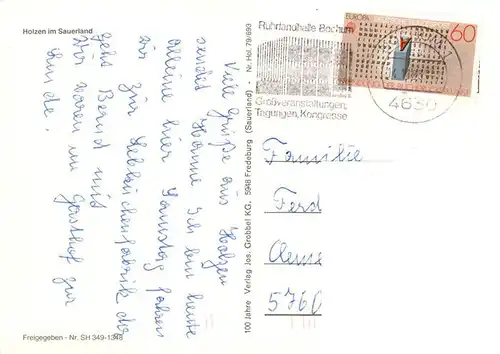 Holzen im Sauerland
Viele Grüße aus Holzen
sendet Hanne Ich bin heute
alleine hier Samstag fahren
wir zur Lebkuchenfabrik da
geht Bernd mit
Wir waren im Gasthof zur
Linde.
Freigegeben - Nr. SH 349-1348
100 Jahre Verlag Jos. Grobbel KG., 5948 Fredeburg (Sauerland) - Nr. Hol. 79/699
Ruhrlandhalle Bochum
Großveranstaltungen,
Tagungen, Kongresse
EUROPA
60
4630
Familie
Ferd
5760